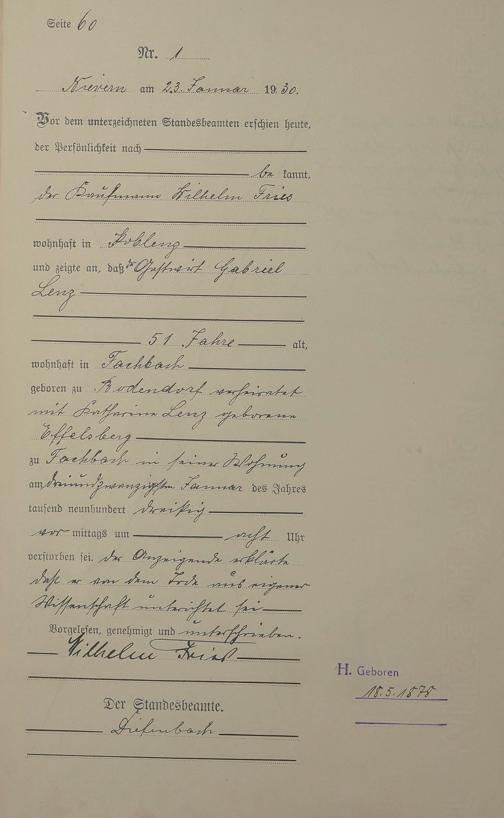 Seite 60
Nr. 1
Nievern am 23. Januar 1930.
Vor dem unterzeichneten Standesbeamten erschien heute,
der Persönlichkeit nach
be kannt,
der Kaufmann Wilhelm Fries
wohnhaft in Koblenz
und zeigte an, daß der Gastwirt Gabriel
Lenz
51 Jahre alt,
wohnhaft in Fachbach
geboren zu Bodendorf verheiratet
mit Katharine Lenz geborene
Effelsberg
zu Fachbach in seiner Wohnung
am dreiundzwanzigsten Januar des Jahres
tausend neunhundert dreißig
vor mittags um acht Uhr
verstorben sei. Der Anzeigende erklärte
daß er von dem Tode aus eigener
Wissenschaft unterrichtet sei
Vorgelesen, genehmigt und unterschrieben.
Wilhelm Fries
Der Standesbeamte.
Diefenbach
H. Geboren
18.5.1878